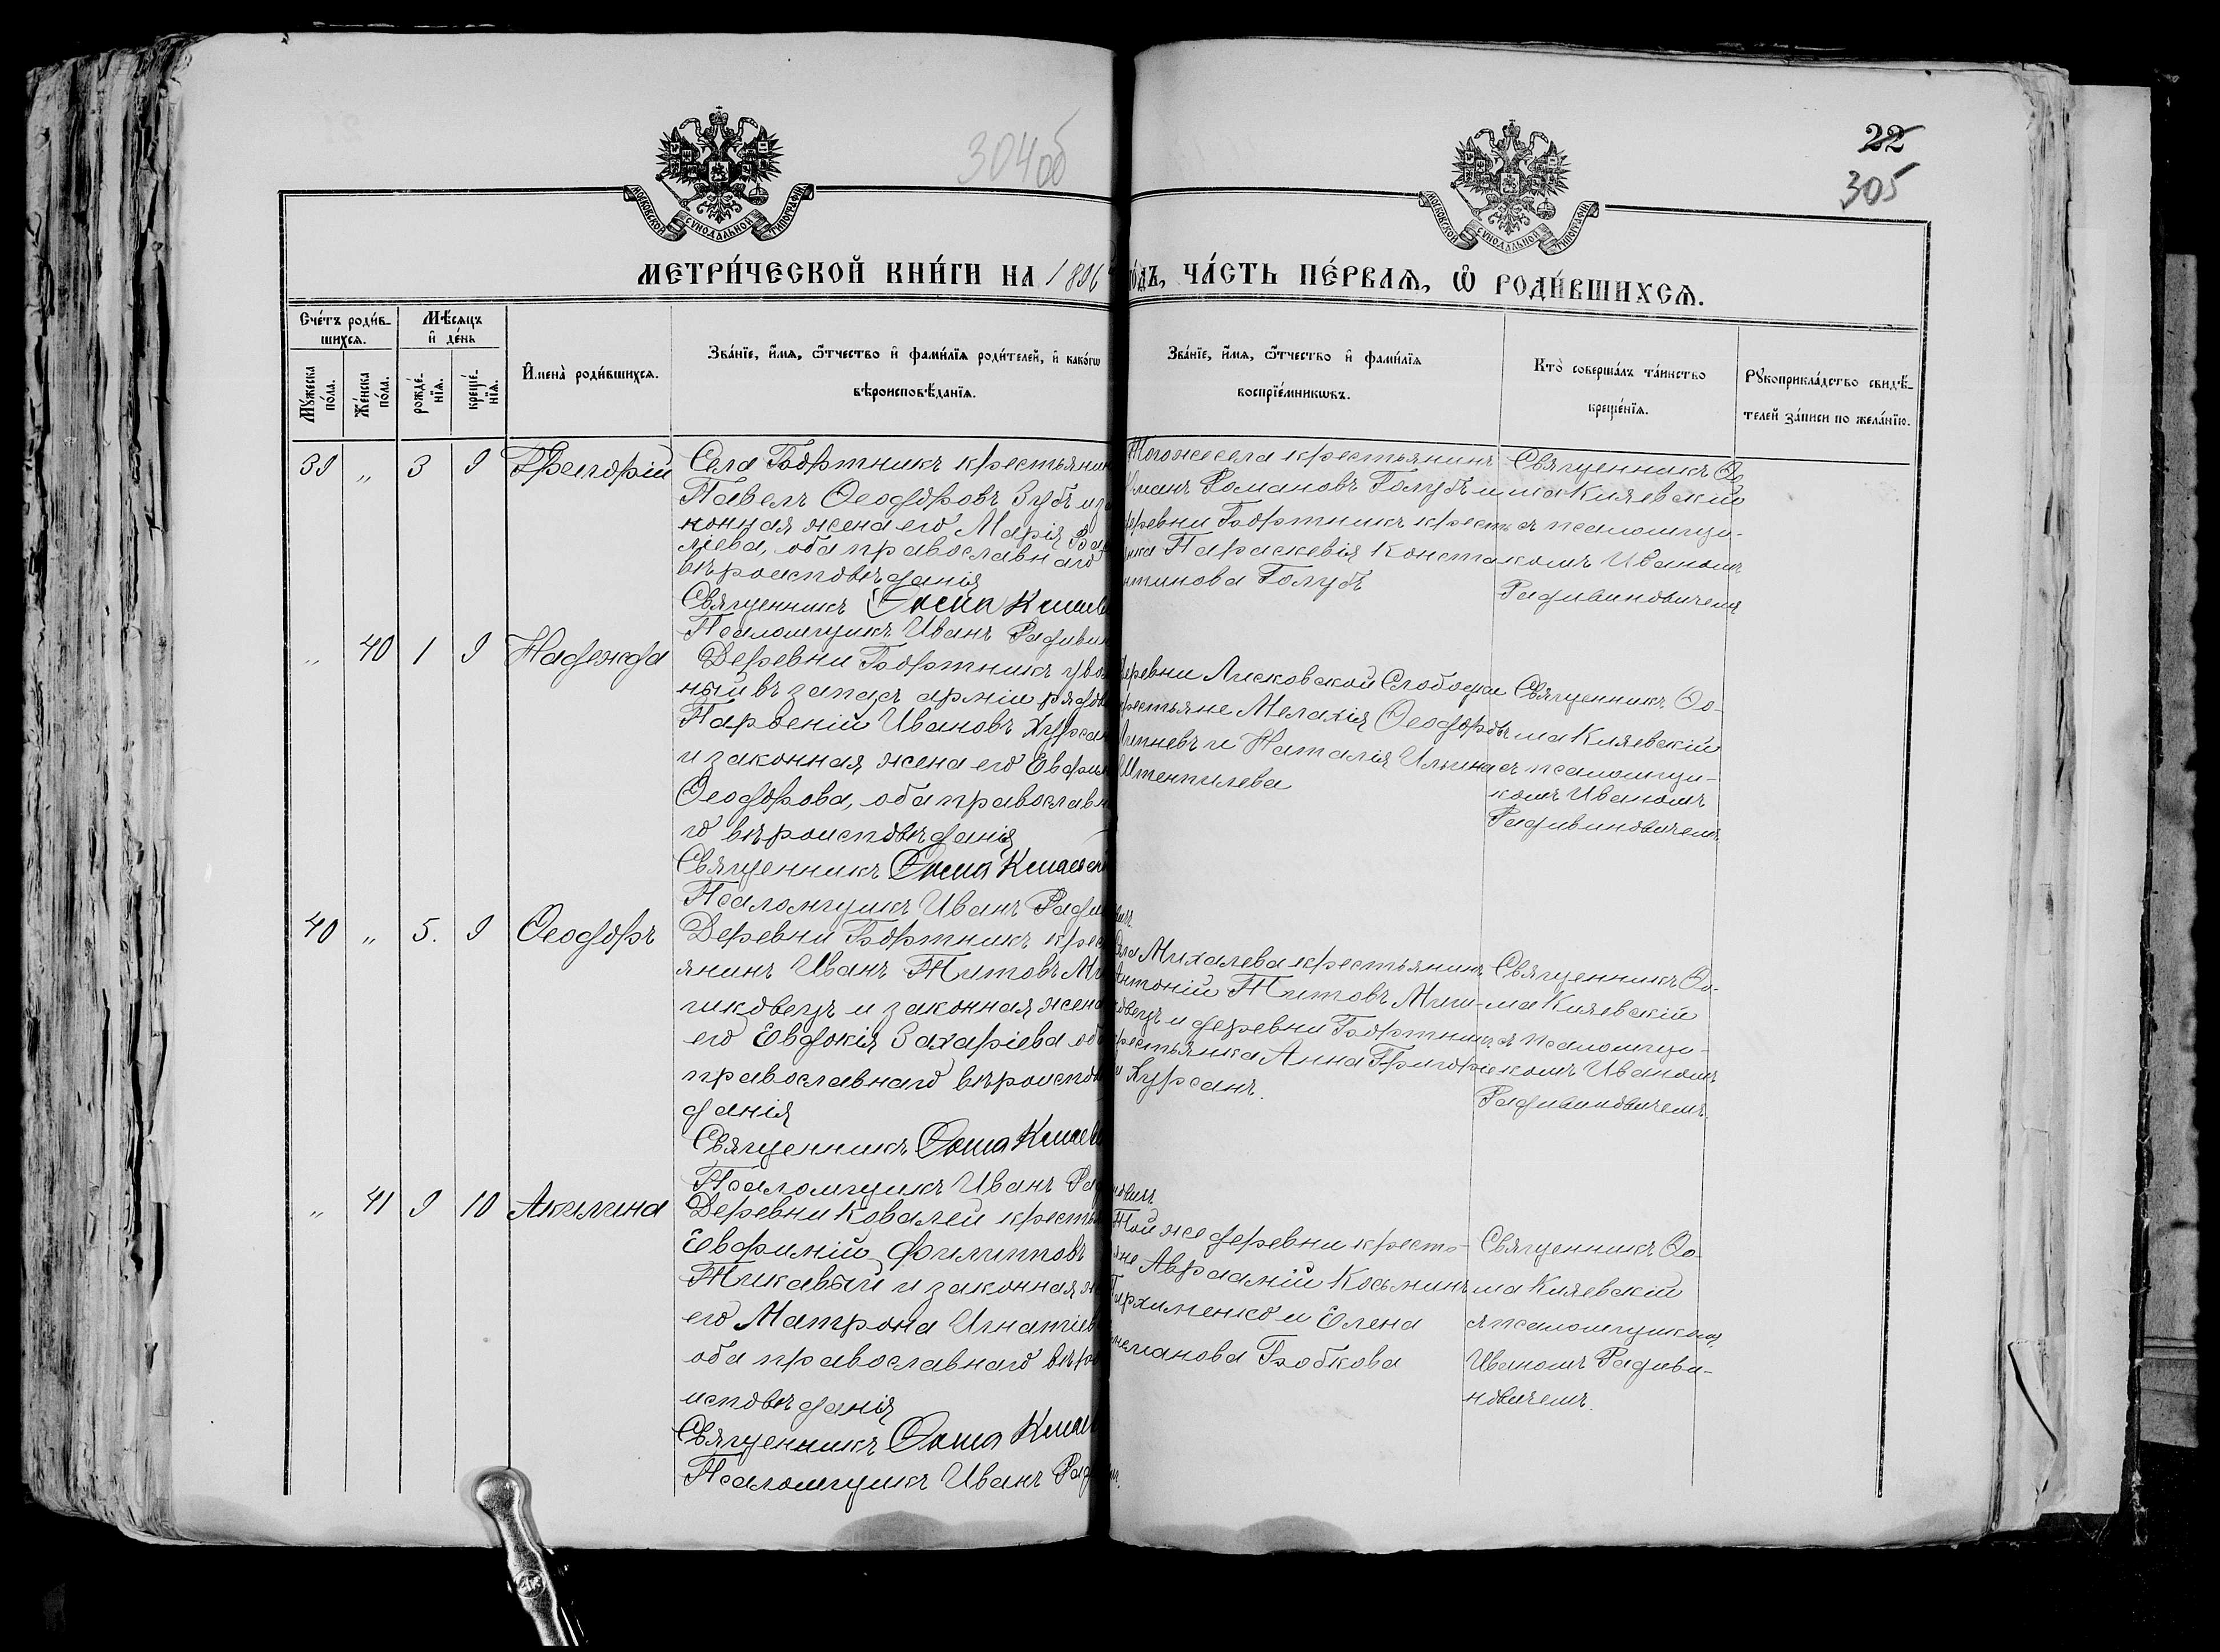 304об
22
305
МОСКОВСКОЙ СѴНОДАЛЬНОЙ ТИПОГРАФІИ
МОСКОВСКОЙ СѴНОДАЛЬНОЙ ТИПОГРАФІИ
МЕТРИ́ЧЕСКОЙ КНИ́ГИ НА 1896 го́дъ, ЧА́СТЬ ПЕ́РВАѦ, Ѽ РОДИ́ВШИХСѦ.
Сче́тъ роди́в-
шихсѧ.
Мѣ́сѧцъ
и҆ де́нь
Мꙋ́жеска по́ла.
Же́нска по́ла.
рожде́-нїѧ.
креще́-нїѧ.
И҆мена̀ роди́вшихсѧ.
Зва́нїе, и҆́мѧ, ѻ҆́тчество и҆ фами́лїѧ роди́телей, и҆ како́гѡ
вѣроисповѣ́данїѧ.
Зва́нїе, и҆́мѧ, ѻ҆́тчество и҆ фами́лїѧ
воспрїе́мникѡвъ.
Кто̀ соверша́лъ та́инство
креще́нїѧ.
Рꙋкоприкла́дство свидѣ́-
телей за́писи по жела́нїю.
39 „ 3 9 Григорій
Села Бортникъ крестьянин
Павелъ Ѳеодоровъ Зубъ и за
конная жена его Марія Ва
ліева, оба православнаго
вѣроисповѣданія
Священникъ Ѳома Кияев
Псаломщикъ Иванъ Радивин
Тогоже села крестьянинъ
Романъ Романовъ Голубъ и
деревни Бортникъ кресть
янка Параскевія Конста
нтинова Голубъ
Священникъ Ѳо
ма Кияевскій
съ псаломщи-
комъ Иваномъ
Радивиновичемъ
„ 40 1 9 Надежда
Деревни Бортникъ уво
ный въ запасъ арміи рядов
Парѳеній Ивановъ Курсан
и законная жена его Евфи
Ѳеодорова, оба православн
го вѣроисповѣданія
Священникъ Ѳома Кияевск
Псаломщикъ Иванъ Ради
Деревни Лисковской Слободы
крестьяне Мелахія Ѳеодоровъ
и Наталія Ильина
Священникъ Ѳо-
ма Кияевскій
съ псаломщи-
комъ Иваномъ
Радивиновичемъ
40 „ 5. 9 Ѳеодоръ
Деревни Бортникъ крес
янинъ Иванъ Титовъ Ми
шковецъ и законная жена
его Евдокія Захаріева об
православнаго вѣроисповѣ
данія
Священникъ Ѳома Кияев
Псаломщикъ Иванъ Ра
Села Михалева крестьянинъ
Антоній Титовъ Миш-
ковецъ и деревни Бортникъ
крестьянка Анна Григорье
Курсанъ.
Священникъ Ѳо-
ма Кияевскій
съ псаломщи-
комъ Иваномъ
Радивиновичемъ.
„ 41 9 10 Акилина
Деревни Ковалей кресть
Евфимій Филипповъ
Тикавый и законная ж
его Матрона Игнатіев
оба православнаго вѣро
исповѣданія
Священникъ Ѳома Кияев
Псаломщикъ Иванъ Рад
Той же деревни кресть-
яне Авраамій Косьминъ
Пархименко и Елена
Бобкова
Священникъ Ѳо-
ма Кияевскій
съ псаломщикомъ
Иваномъ Радиви-
новичемъ.